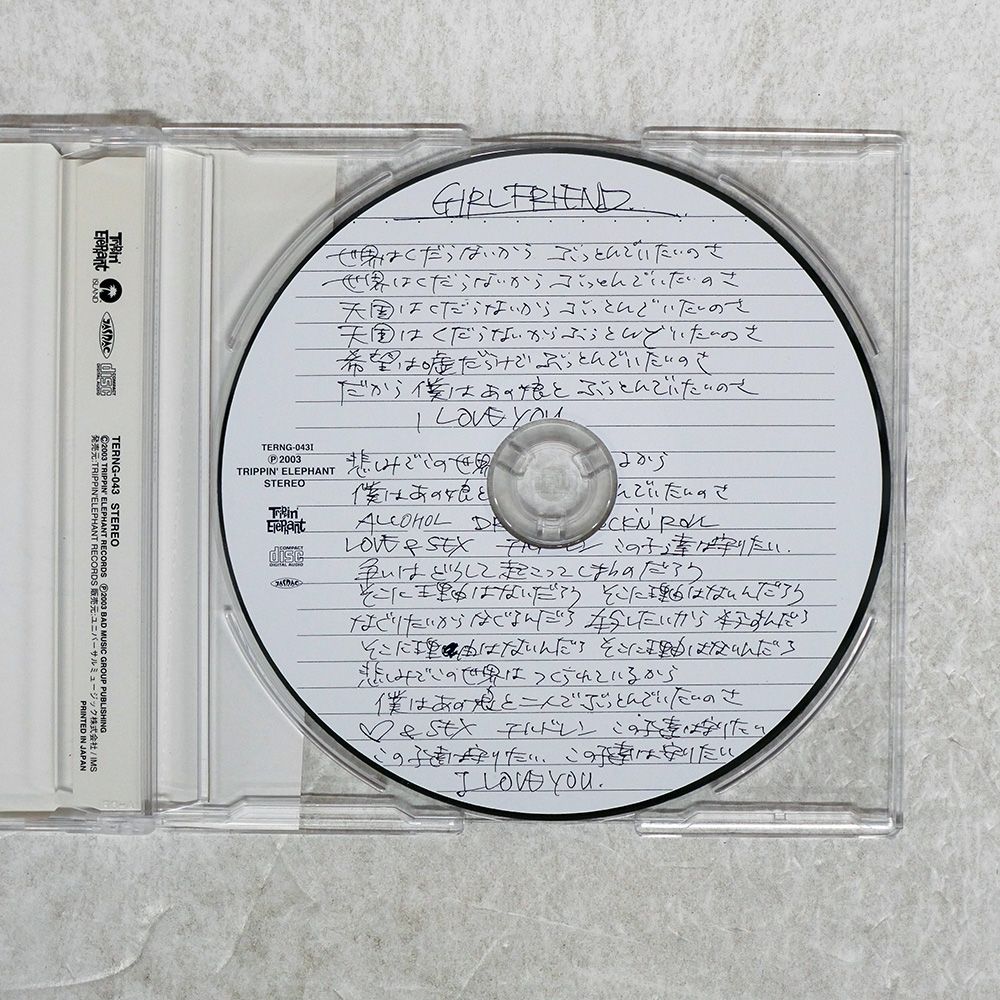 Trippin' Elephant
ISLAND
JASRAC
COMPACT disc DIGITAL AUDIO
TERNG-043 STEREO
Ⓒ2003 TRIPPIN' ELEPHANT RECORDS Ⓟ2003 BAD MUSIC GROUP PUBLISHING
発売元:TRIPPIN'ELEPHANT RECORDS 販売元:ユニバーサルミュージック株式会社 / IMS
PRINTED IN JAPAN
GIRLFRIEND
世界はくだらないから ぶっとんでいたいのさ
世界はくだらないから ぶっとんでいたいのさ
天国はくだらないから ぶっとんでいたいのさ
天国はくだらないからぶっとんでいたいのさ
希望は嘘だらけで ぶっとんでいたいのさ
だから僕はあの娘と ぶっとんでいたいのさ
I LOVE YOU
TERNG-043I
Ⓟ2003
TRIPPIN' ELEPHANT
STEREO
Trippin' Elephant
COMPACT disc DIGITAL AUDIO
JASRAC
悲しみでこの世界 るから
僕はあの娘と でいたいのさ
ALCOHOL DR OCKN' ROLL
LOVE & SEX チルドレン この子達は守りたい
争いはどうして起こってしまうのだろう
そこに理由はないだろう そこに理由はないんだろう
なぐりたいからなぐるんだろう 殺したいから殺すんだろう
そこに理由はないんだろう そこに理由はないんだろう
悲しみでこの世界はつくられているから
僕はあの娘と二人でぶっとんでいたいのさ
♡ & SEX チルドレン この子達は守りたい
この子達は守りたい この子達は守りたい
I LOVE YOU.